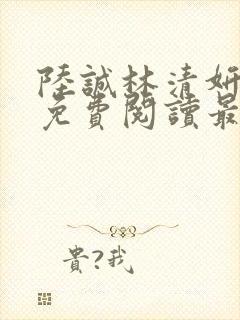 陸誠林清妍
免費閱讀最
貴?我